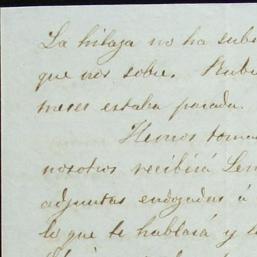 La hilaja no ha sub
que nos sobre. Rubi
meses estaba parada.
Hemos toma
nosotros recibirá Len
adjuntas endozadas á
lo que te hablará y l